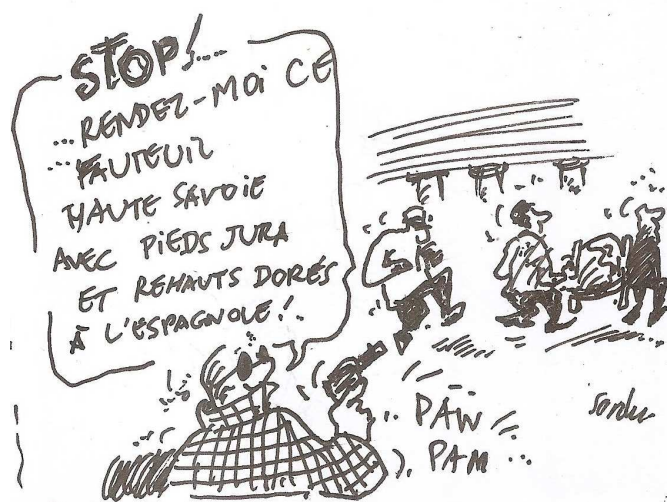 STOP!...
...RENDEZ-MOI CE
...FAUTEUIL
HAUTE SAVOIE
AVEC PIEDS JURA
ET REHAUTS DORÉS
À L'ESPAGNOLE!..
PAW
PAM